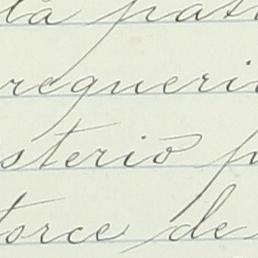 la pat
requeri
sterio p
torce de